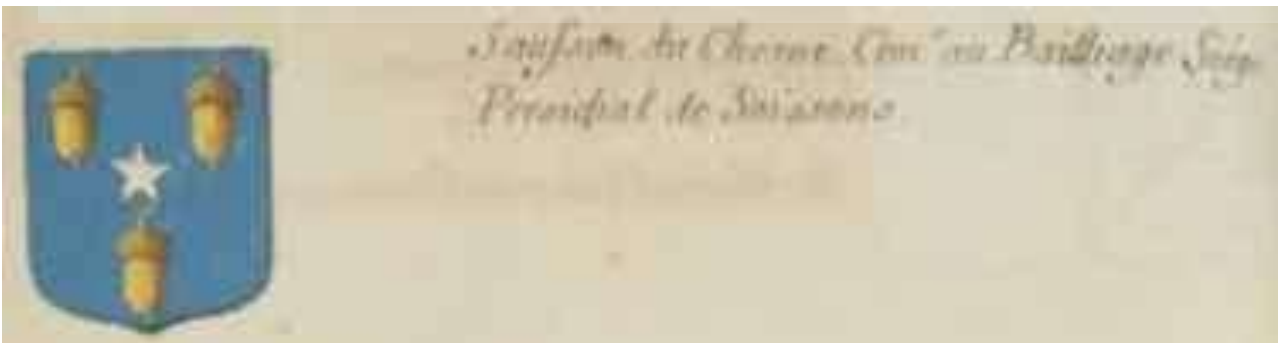 du Chesne Conˢ au Bailliage Siege
Presidial de Soissons